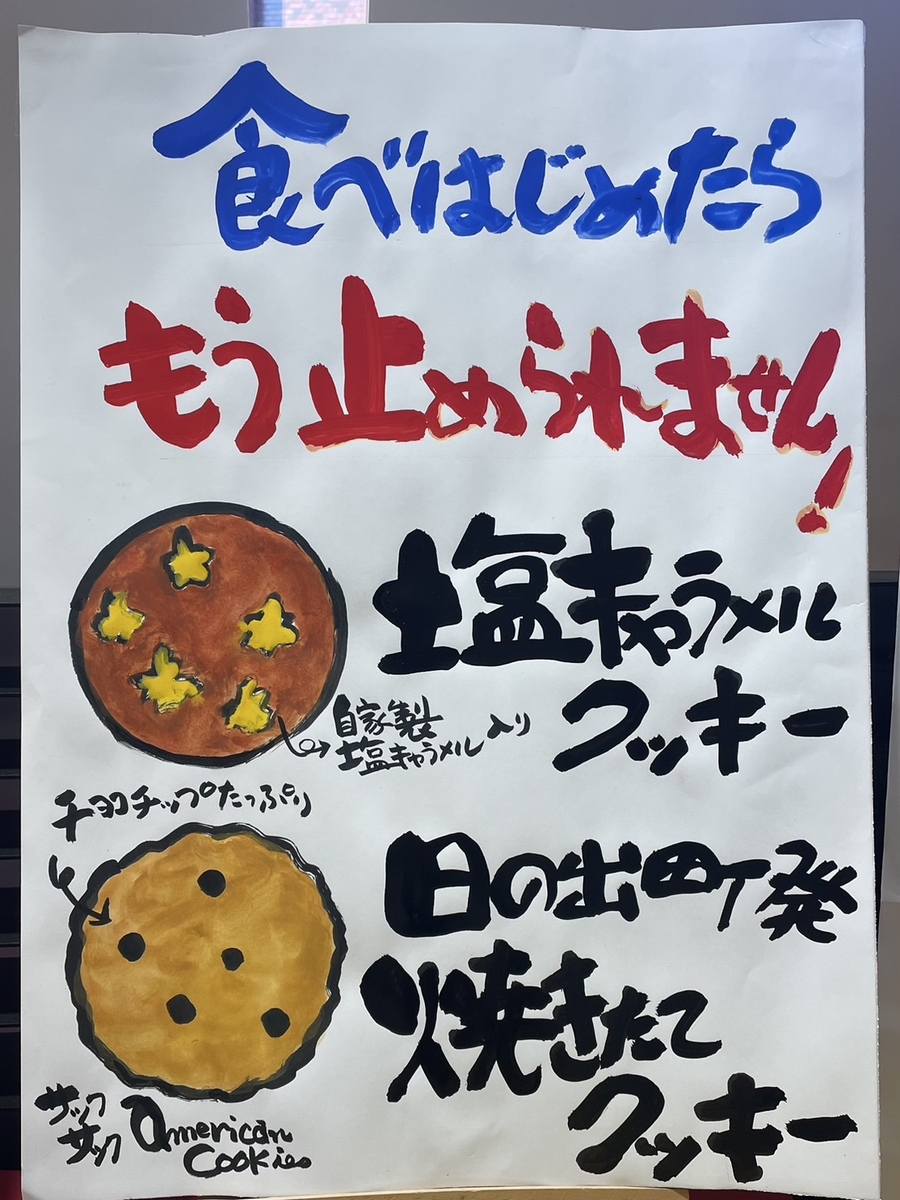 食べはじめたら
もう止められません!
塩キャラメル
クッキー
自家製
塩キャラメル入り
チョコチップたっぷり
日の出町発
焼きたて
クッキー
サックサック
American
Cookies